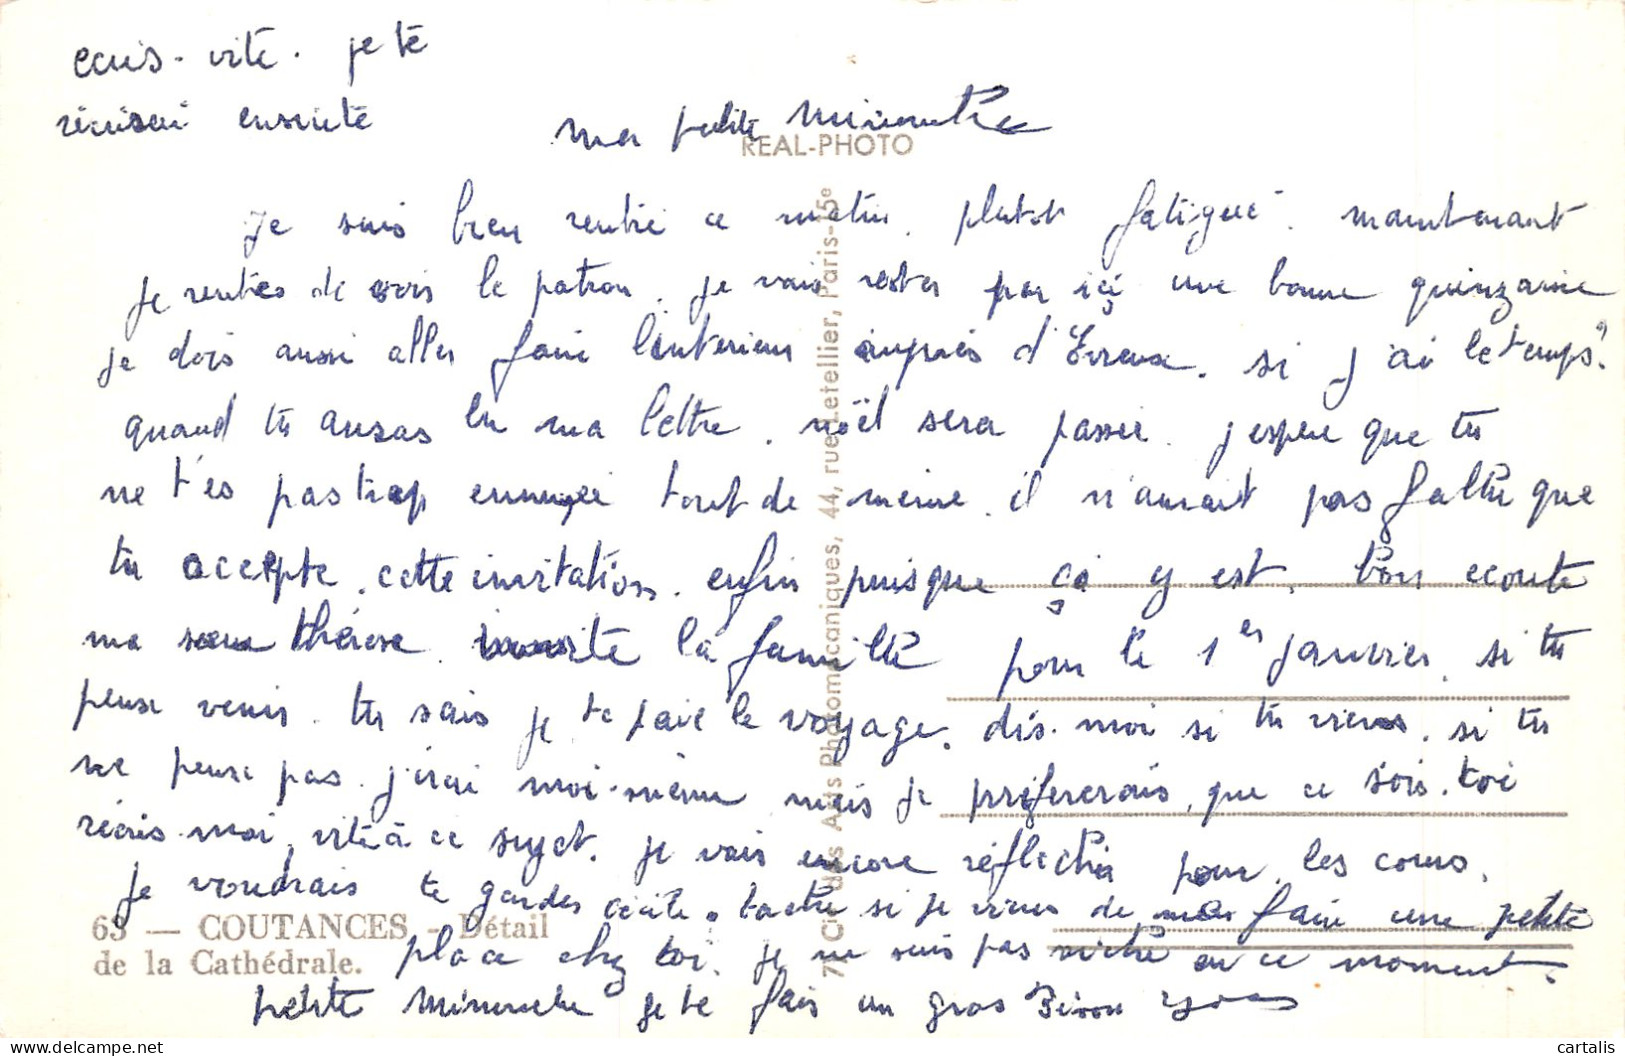 ecris - vite. je te
récrirai ensuite
ma petite Minouche
REAL-PHOTO
Je suis bien rentré ce matin. plutot fatigué. maintenant
je rentre de voir le patron. je vais rester par içi une bonne quinzaine
je dois aussi aller faire l'interieur auprès d'Evreux. si j'ai le temps.
quand tu auras lu ma lettre. noël sera passé. j'espere que tu
ne t'es pas trop ennuyée tout de meme. il n'aurait pas fallu que
tu accepte. cette invitation. enfin puisque ça y est. bon ecoute
ma sœur thérèse. invite la famille pour le 1er janvier. si tu
peux venir. tu sais je te paie le voyage. dis-moi si tu viens. si tu
ne peux pas. j'irai moi-même mais je préfererais, que ce sois-toi
récris-moi, vite à ce sujet. je vais encore réflechir pour les cours.
Je voudrais te garder tache si je viens de me faire une petite
place chez toi. je ne suis pas riche en ce moment.
petite Minouche je te fais un gros Bisou
63 — COUTANCES - Détail
de la Cathédrale.
Cie des Arts Photomécaniques, 44, rue Letellier, Paris-15e
cartalis
www.delcampe.net